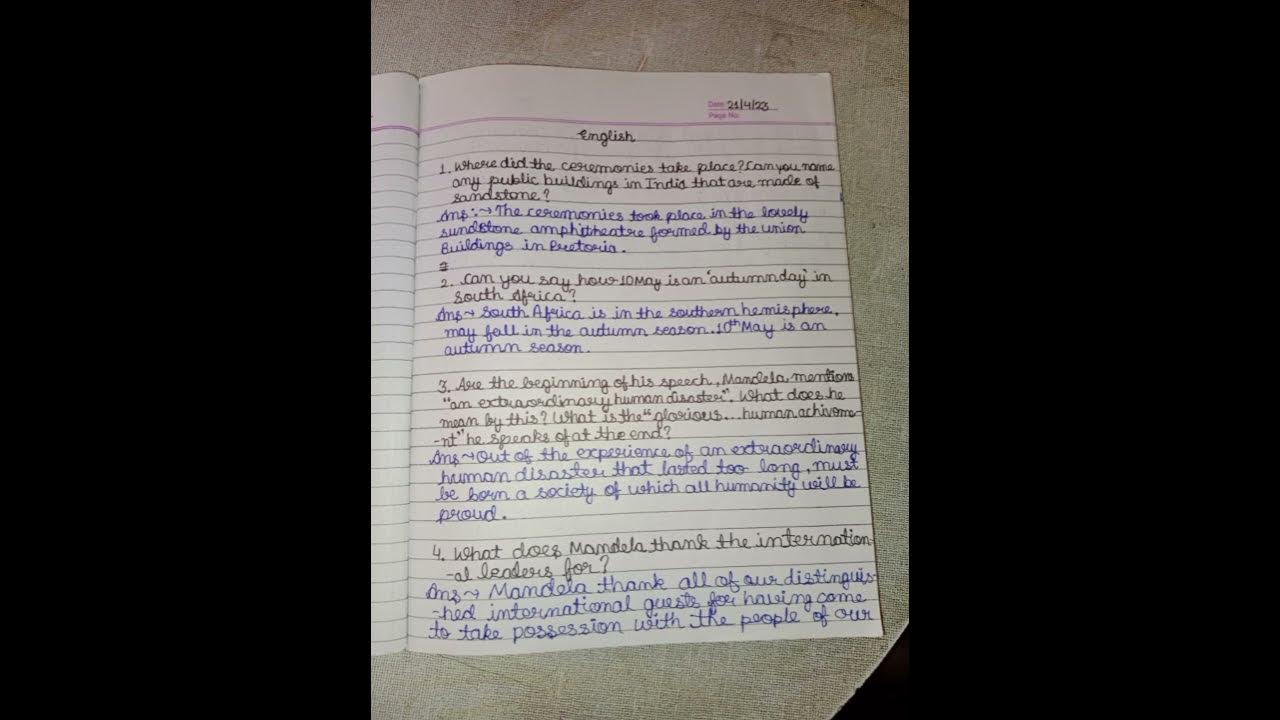 Date 21/4/23
Page No:
English
1. Where did the ceremonies take place? Can you name
any public buildings in India that are made of
sandstone?
Ans:→ The ceremonies took place in the lovely
sundstone amphitheatre formed by the union
Buildings in Pretoria.
2. Can you say how 10 May is an 'autumn day' in
South Africa?
Ans→ South Africa is in the southern hemisphere,
may fall in the autumn season. 10th May is an
autumn season.
3. Are the beginning of his speech, Mandela mentions
"an extraordinary human disaster". What does he
mean by this? What is the "glorious... human achiveme-
-nt" he speaks of at the end?
Ans→ Out of the experience of an extraordinary
human disaster that lasted too long, must
be born a society of which all humanity will be
proud.
4. What does Mandela thank the internation-
-al leaders for?
Ans→ Mandela thank all of our distinguis-
-hed international guests for having come
to take possession with the people of our